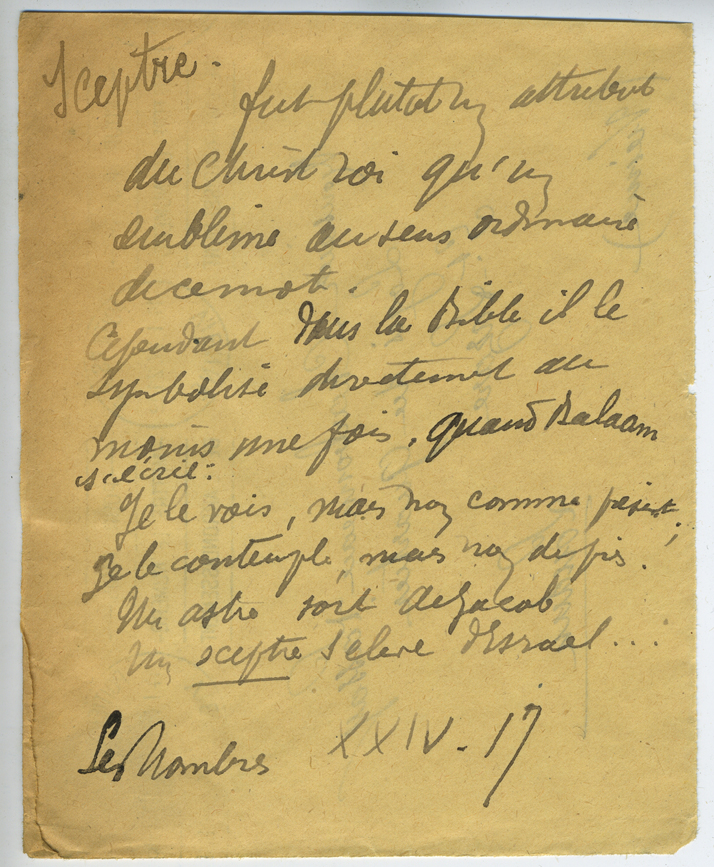 Sceptre.
fut plutot un attribut
du Christ roi qu'un
emblème au sens ordinaire
de ce mot.
Cependant dans la Bible il le
symbolise directement au
moins une fois, quand Balaam
s'écrie:
Je le vois, mais non comme présent;
Je le contemple, mais non de près!
Un astre sort de Jacob
Un sceptre s'élève d'Israel...
Les Nombres XXIV. 17